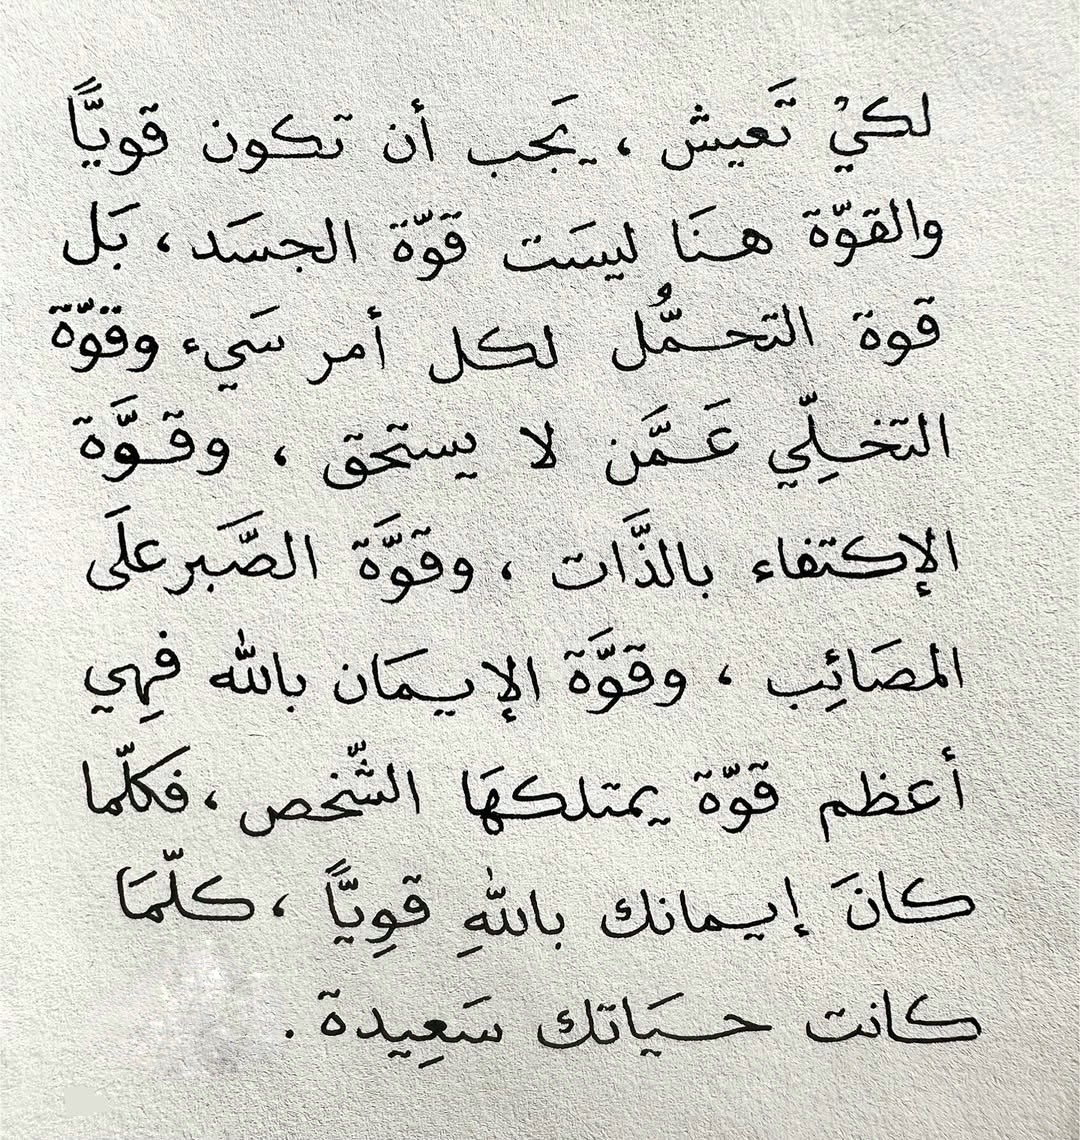 لكيْ تَعيش ، يَجب أن تكون قويًّا
والقوّة هنَا ليسَت قوّة الجسَد ، بَل
قوة التحمُّل لكل أمر سَيء وقوّة
التخلِّي عَمَّن لا يستحق ، وقوَّة
الإكتفاء بالذَّات ، وقوَّة الصَّبر علَى
المصَائِب ، وقوَّة الإيمَان بالله فهِي
أعظم قوّة يمتلكهَا الشّخص ، فكلّما
كانَ إيمانك باللهِ قوِيًّا ، كلّمَا
كانت حيَاتك سَعِيدة .